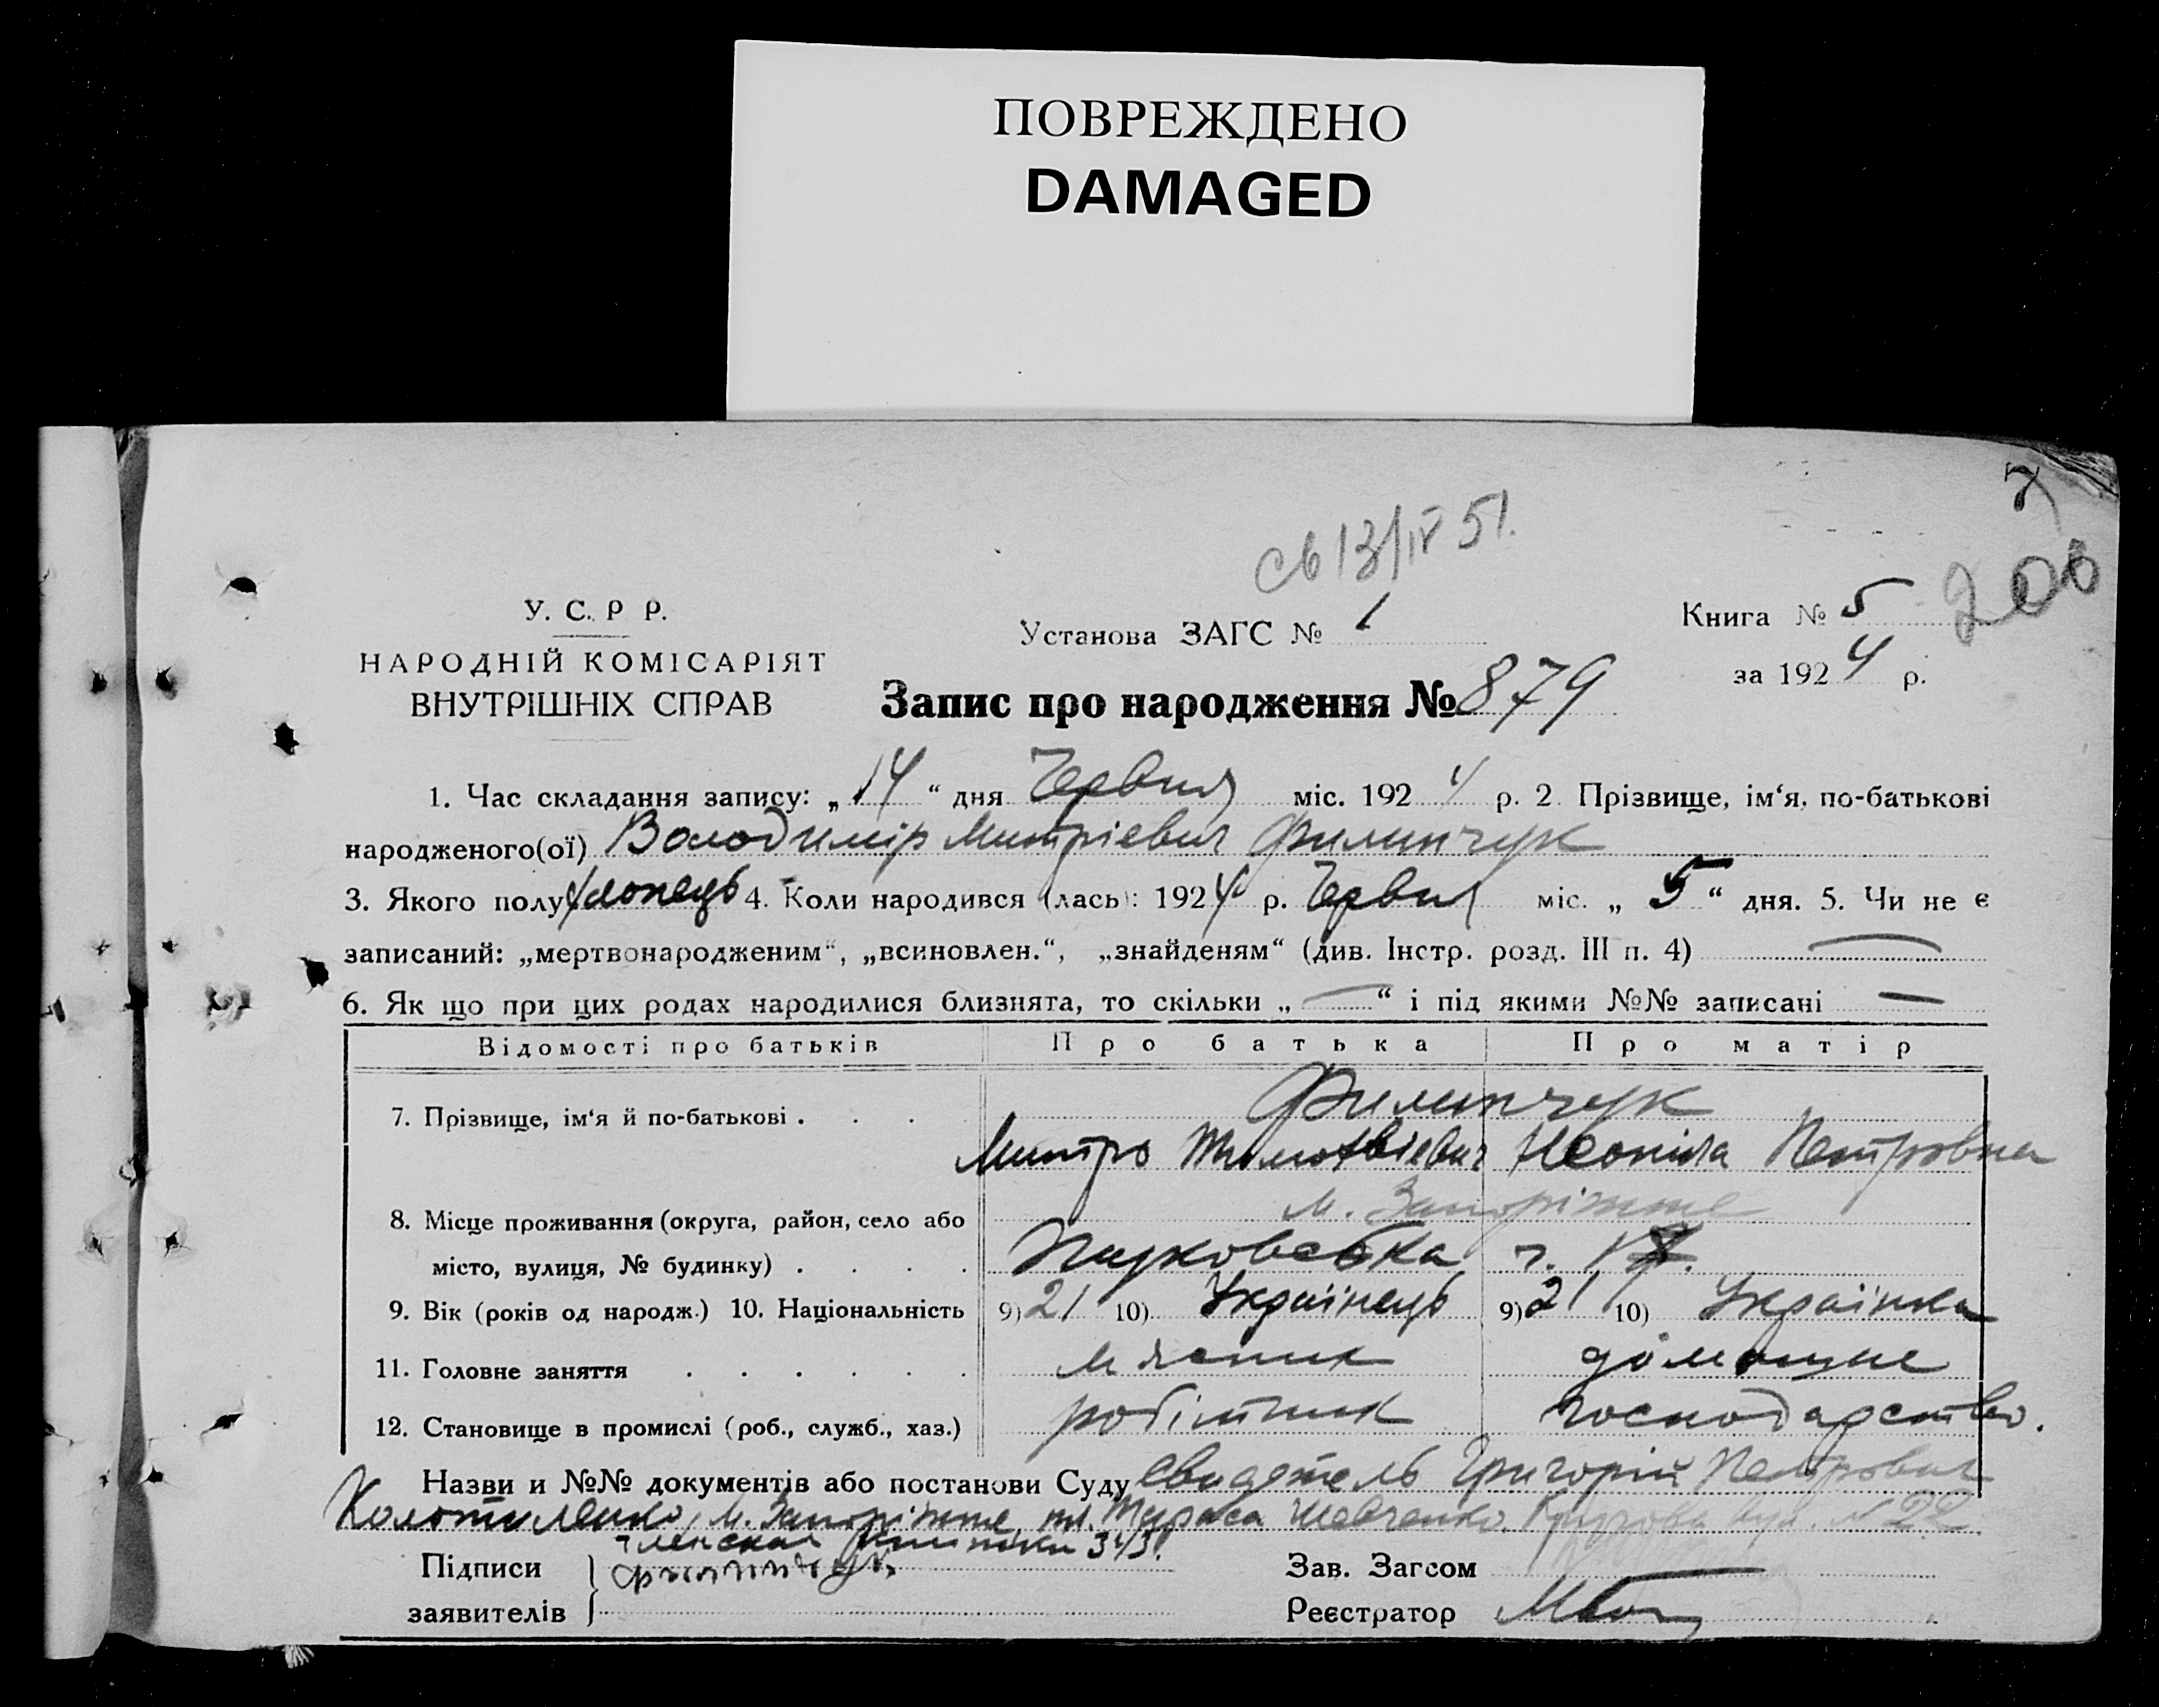 ПОВРЕЖДЕНО
DAMAGED
7
св 13/IV 51.
200
У. С. Р Р.
НАРОДНІЙ КОМІСАРІЯТ
ВНУТРІШНІХ СПРАВ
Установа ЗАГС № 1
Книга № 5
за 1924 р.
Запис про народження № 879
1. Час складання запису: „14“ дня Червня міс. 1924 р. 2 Прізвище, ім‘я, по-батькові
народженого(ої) Володимір Митріевич Филипчук
3. Якого полу хлопець 4. Коли народився (лась): 1924 р. Червня міс. „5“ дня. 5. Чи не є
записаний: „мертвонародженим“, „всиновлен.“, „знайденям“ (див. Інстр. розд. III п. 4) —
6. Як що при цих родах народилися близнята, то скільки „—“ і під якими №№ записані —
Відомості про батьків Про батька Про матір
7. Прізвище, ім‘я й по-батькові . . . Филипчук
Митро Тимофвіевич Неоніла Петровна
8. Місце проживання (округа, район, село або м. Запоріжже
місто, вулиця, № будинку) . . . .
9. Вік (років од народж.) 10. Національність 9) 21 10) Українець 9) 21 10) Українка
11. Головне заняття . . . . . . мясник домашне
12. Становище в промислі (роб., служб., хаз.) робітник господарство.
Назви и №№ документів або постанови Суду свидетель Григорій Петрович
Колотиленко, м. Запоріжже, пл. Тараса Шевченко. вул. № 22
членская книжка
Підписи Филипчук
заявителів
Зав. Загсом
Реєстратор